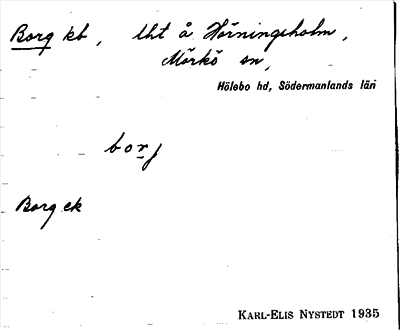 Borg kb, lht å Hörningsholm,
Mörkö sn,
Hölebo hd, Södermanlands län
borj
Borg ek
KARL-ELIS NYSTEDT 1935